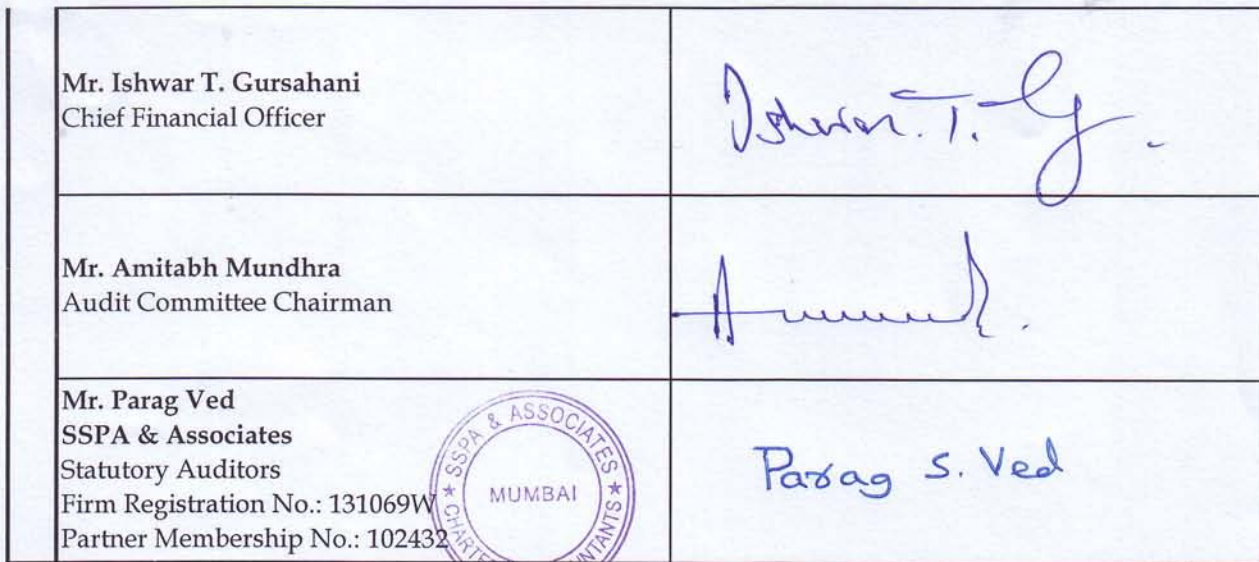 Mr. Ishwar T. Gursahani
Chief Financial Officer
Ishwar. T. G.
Mr. Amitabh Mundhra
Audit Committee Chairman
Mr. Parag Ved
SSPA & Associates
Statutory Auditors
Firm Registration No.: 131069W
Partner Membership No.: 102432
SSPA & ASSOCIATES
MUMBAI
Parag S. Ved